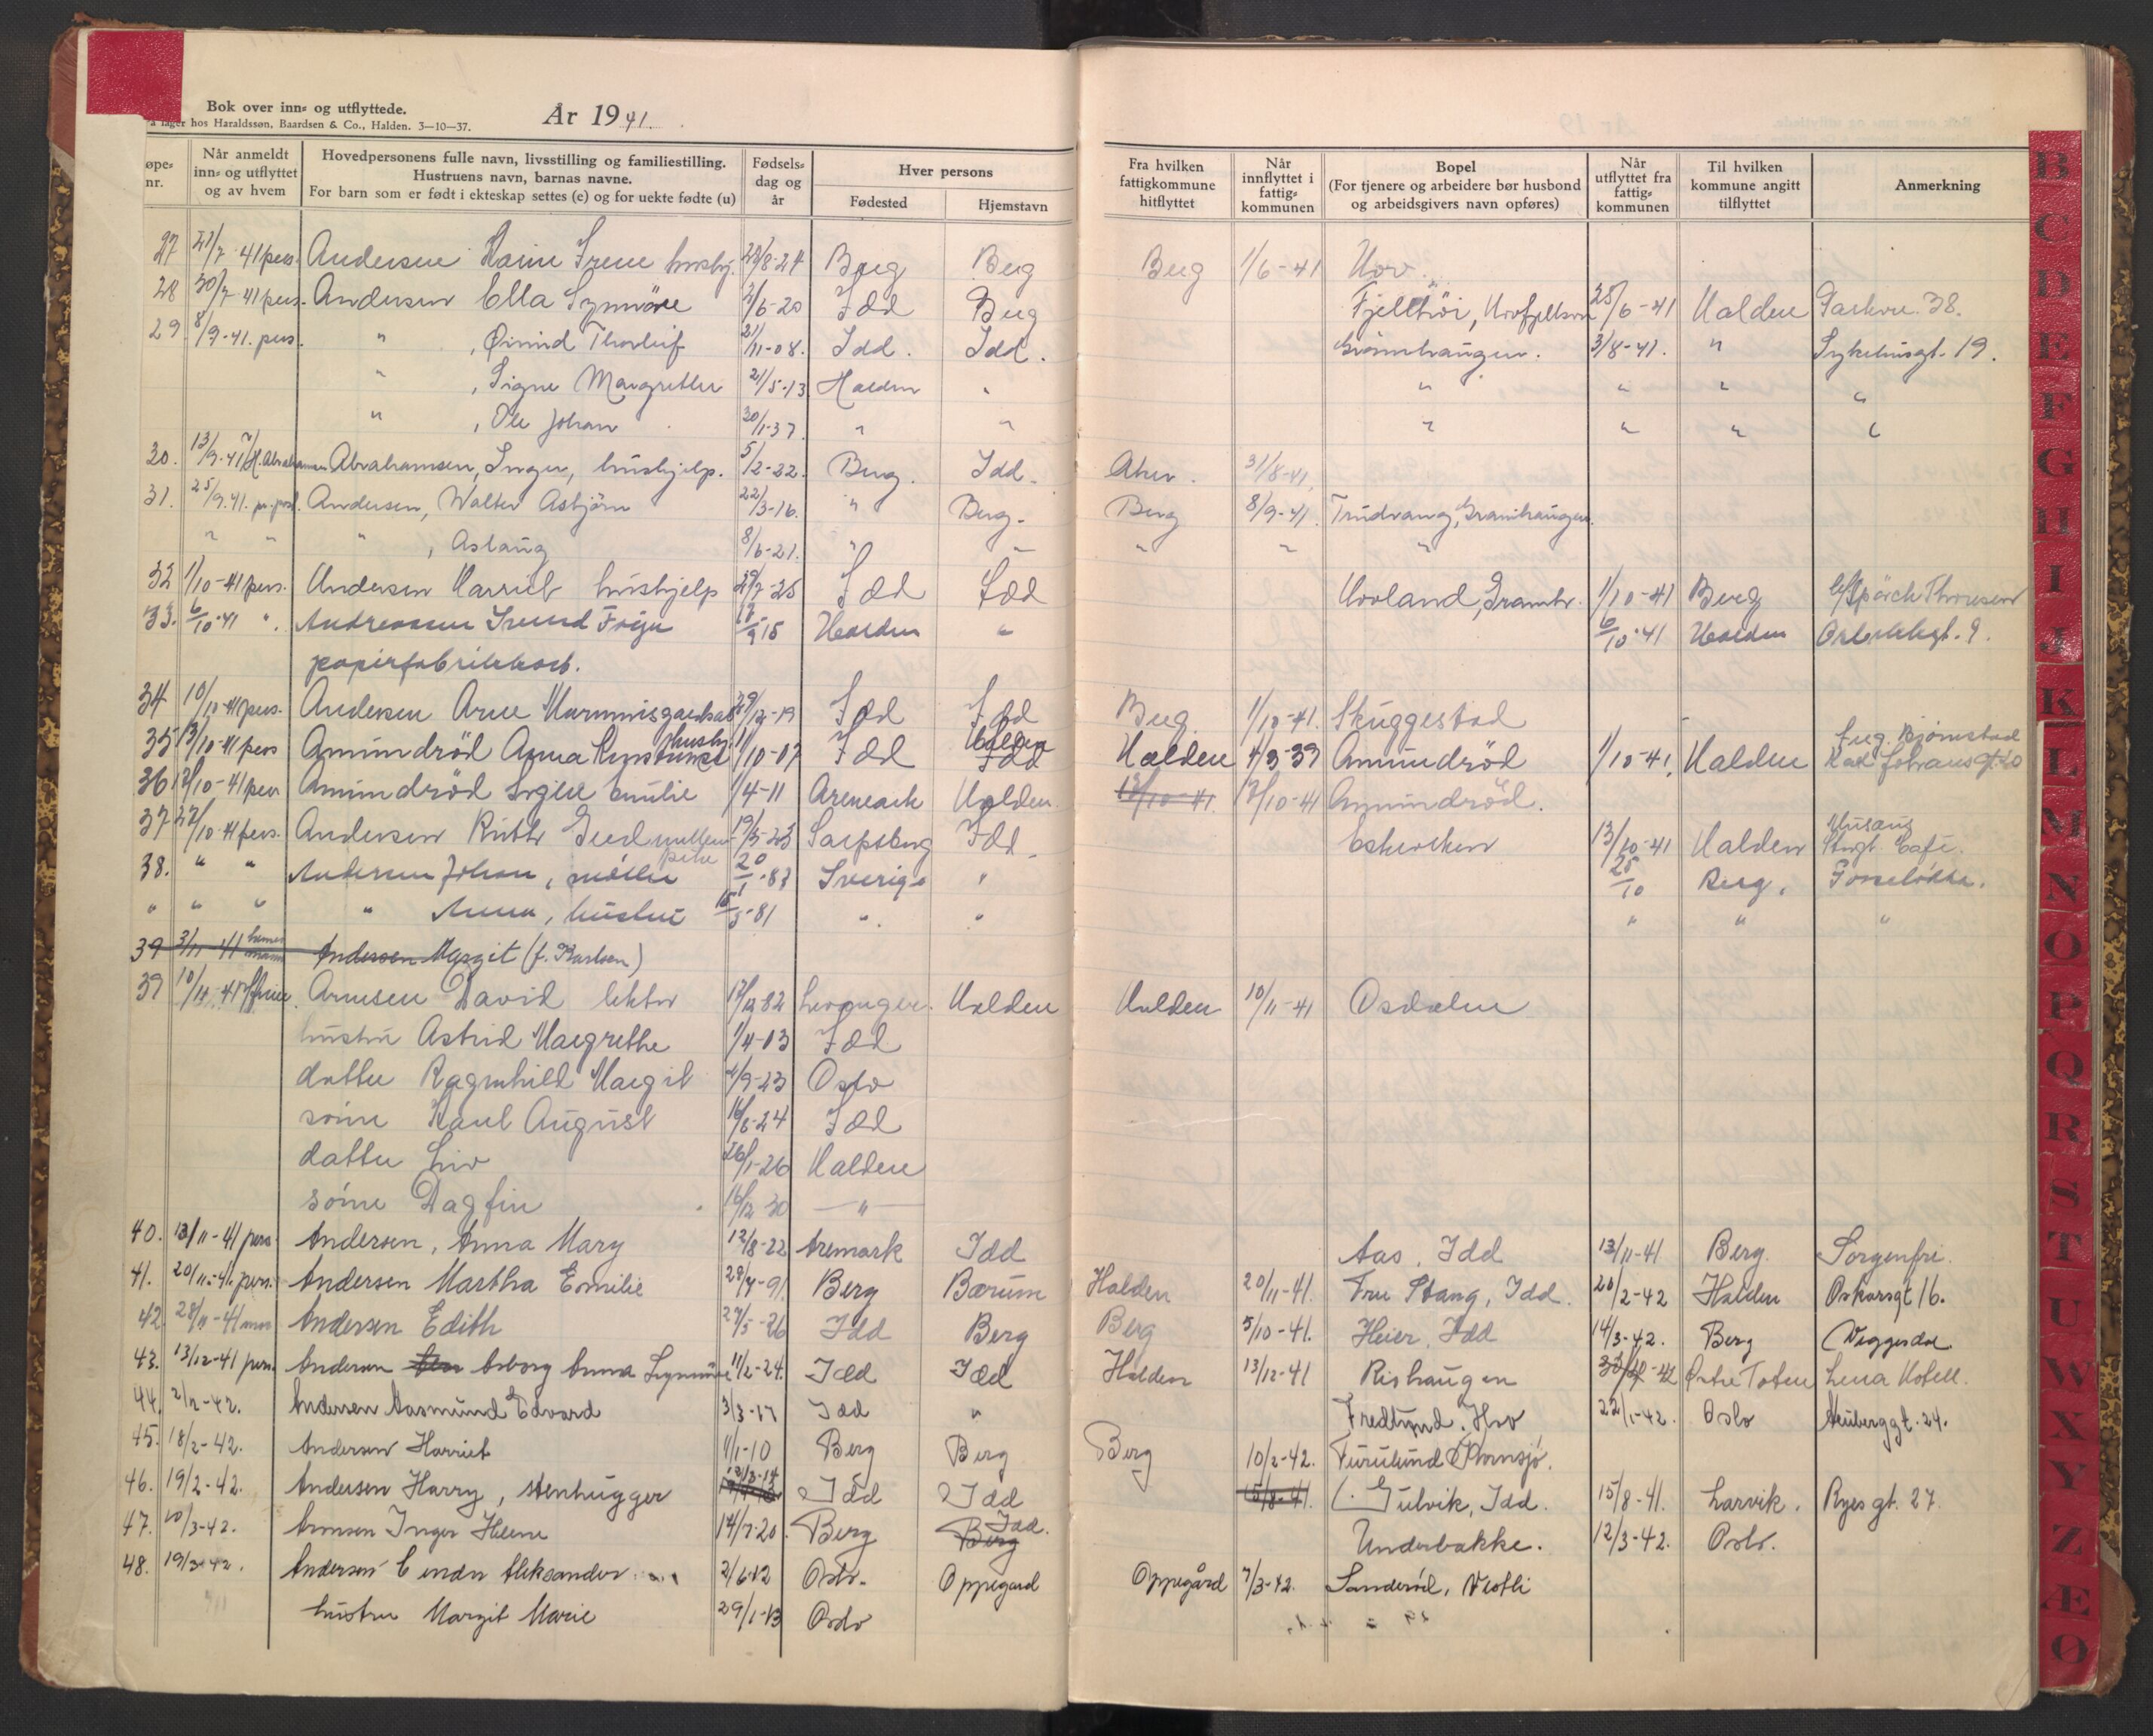 Bok over inn- og utflyttede.
På lager hos Haraldssøn, Baardsen & Co., Halden. 3—10—37.
År 1941.
øpe-nr. Når anmeldt inn- og utflyttet og av hvem Hovedpersonens fulle navn, livsstilling og familiestilling. Hustruens navn, barnas navne. For barn som er født i ekteskap settes (e) og for uekte fødte (u) Fødsels-dag og år Hver persons Fødested Hjemstavn Fra hvilken fattigkommune hitflyttet Når innflyttet i fattig-kommunen Bopel (For tjenere og arbeidere bør husbond og arbeidsgivers navn opføres) Når utflyttet fra fattig-kommunen Til hvilken kommune angitt tilflyttet Anmerkning
27 21/7-41 pers. Andersen Karin Irene hushj. 22/8-24 Berg Berg Berg 1/6-41 Hov.
28 30/7-41 pers. Andersen Ella Synnöve 2/6-20 Idd Berg 25/6-41 Halden Parkvn. 38.
29 8/9-41. pers. " , Øivind Thorleif 21/11-08. Idd. Idd. 3/8-41. " Sykehusgt. 19.
" , Signe Margrethe 21/5-13 Halden " " " " "
" , Ole Johan 30/1-37 " " " " " "
30. 13/9-41 Abrahamsen, Inger, hushjelp. 5/2-22. Berg. Idd. 31/8-41.
31. 25/9.41. pr. post. Andersen, Walter Asbjörn 22/3-16. " Berg. Berg 8/9-41. Trudvang,
" " " , Aslaug 8/6-21. " " " " "
32 1/10-41 pers. Andersen Harriet hushjelp 29/7-25 Idd Idd Hovland, 1/10-41 Berg
33. 6/10-41 ". Andreassen 15 Halden " 6/10-41 Halden
papirfabrikkarb.
34 10/10-41 pers. Andersen Arne 29/12-19 Idd Idd Berg 1/10-41. Skuggestad
35 13/10-41 pers Amundröd Anna hushj. 11/10-07 Idd Halden Idd Halden 4/3-39 Amundröd 1/10-41. Halden Bjørnstad Karl Johansgt
36 12/10-41 pers Amundröd Emilie 1/4-11 Aremark Halden 13/10-41 13/10-41 Amundröd.
37 22/10-41 pers. Andersen Ruth 19/5-23 Sarpsborg Idd 13/10-41 Halden Café.
38. " " Andersen Johan, 20/1-83 Sverige " 25/10 Berg.
" " " " Anna, hustru 15/5-81 " " " " "
39 3/11 41 Andersen Margit (f. Karlsen)
39 10/11-41 Arnesen David lektor 82 Levanger. Halden Halden 10/11-41 Osdalen
hustru Astrid Margrethe 1/4-03 Idd
datter Ragnhild Margit 4/9-23 Oslo
sönn Karl August 16/8-24 Idd
datter Liv 26/1-26 Halden
sönn Dagfin 16/12 30 — " —
40. 13/11-41 pers. Andersen, Anna Mary 12/8-22 Aremark Idd Aas, Idd 13/11-41 Berg. Sorgenfri.
41. 20/11-41. pers. Andersen Martha Emilie 28/4-91. Berg Bærum Halden 20/11-41. Fru Stang, Idd. 20/2-42 Halden Oskarsgt 16.
42 28/11-41 Andersen Edith 27/5-26 Idd Berg Berg 5/10-41. Heier, Idd 14/3-42. Berg Veggesdal
43. 13/12-41 pers. Andersen Asborg Anna Synnöve 11/2-24. Idd Idd Halden 13/12-41 Rishaugen Østre Toten Lena Hotell.
44. 2/2-42. Andersen Aasmund Edvard 3/3-17 Idd " Fredlund, Hov 22/1-42. Oslo Neuberggt. 24.
45. 18/2-42. Andersen Harriet 11/1-10 Berg Berg Berg 10/2-42. Furulund Kornsjö.
46. 19/2-42. Andersen Harry, stenhugger 12/3-14 Idd Idd 15/8-41. Gulvik, Idd. 15/8-41. Larvik. Ryes gt. 27.
47. 10/3-42. Aronsen Inger Helene 14/7-20. Berg Berg Idd. Underbakke. 12/3-42. Oslo.
48. 19/3-42. Andersen Aleksander 2/6-12 Oslo. Oppegard Oppegård 7/3-42. Sanderöd,
hustru Margit Marie 29/1-13 Oslo
B
C
D
E
F
G
H
I
J
K
L
M
N
O
P
Q
R
S
T
U
W
X
Y
Z
Æ
Ø